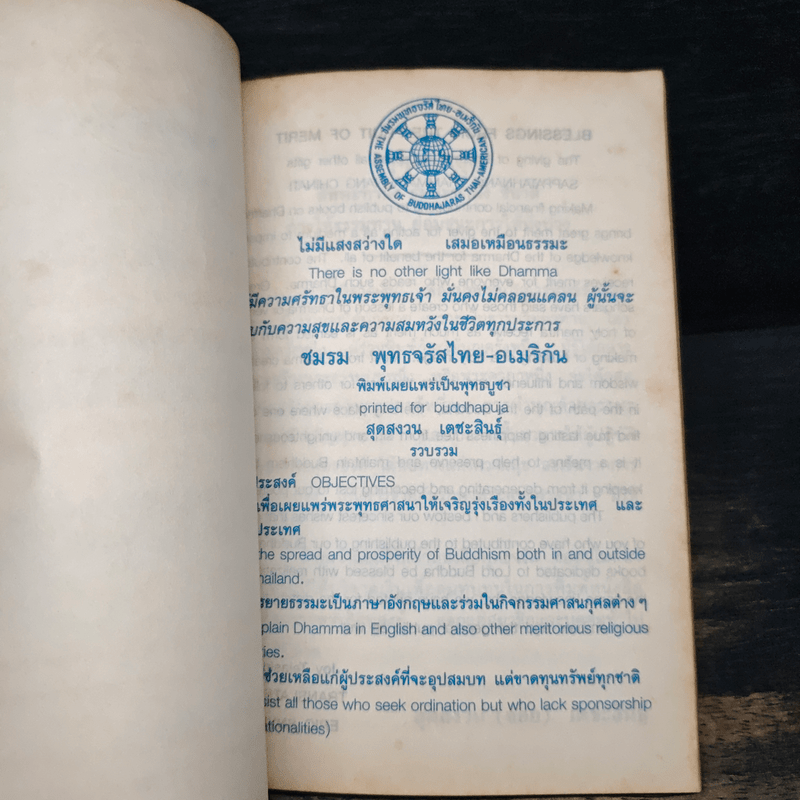 ชมรมพุทธจรัส ไทย-อเมริกัน
THE ASSEMBLY OF BUDDHAJARAS THAI-AMERICAN
ไม่มีแสงสว่างใด เสมอเหมือนธรรมะ
There is no other light like Dhamma
มีความศรัทธาในพระพุทธเจ้า มั่นคงไม่คลอนแคลน ผู้นั้นจะ
บกับความสุขและความสมหวังในชีวิตทุกประการ
ชมรม พุทธจรัสไทย-อเมริกัน
พิมพ์เผยแพร่เป็นพุทธบูชา
printed for buddhapuja
สุดสงวน เตชะสินธุ์
รวบรวม
ประสงค์ OBJECTIVES
เพื่อเผยแพร่พระพุทธศาสนาให้เจริญรุ่งเรืองทั้งในประเทศ และ
ประเทศ
the spread and prosperity of Buddhism both in and outside
hailand.
รยายธรรมะเป็นภาษาอังกฤษและร่วมในกิจกรรมศาสนกุศลต่าง ๆ
plain Dhamma in English and also other meritorious religious
ies.
ช่วยเหลือแก่ผู้ประสงค์ที่จะอุปสมบท แต่ขาดทุนทรัพย์ทุกชาติ
sist all those who seek ordination but who lack sponsorship
ationalities)